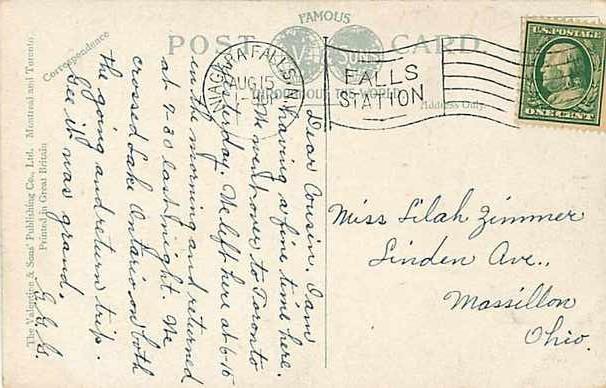 FAMOUS
POST CARD
V & SONS
THROUGHOUT THE WORLD
Correspondence
Address Only.
The Valentine & Sons' Publishing Co., Ltd. Montreal and Toronto
Printed in Great Britain
NIAGARA FALLS
AUG 15
FALLS
STATION
U.S. POSTAGE
ONE CENT
Dear Cousin. I am
having a fine time here.
We went over to Toronto
yesterday. We left here at 6-15
in the morning and returned
at 9-30 last night. We
crossed Lake Ontario on both
the going and return trip.
Gee it was grand.
Miss Lilah Zimmer
Linden Ave.,
Massillon
Ohio.